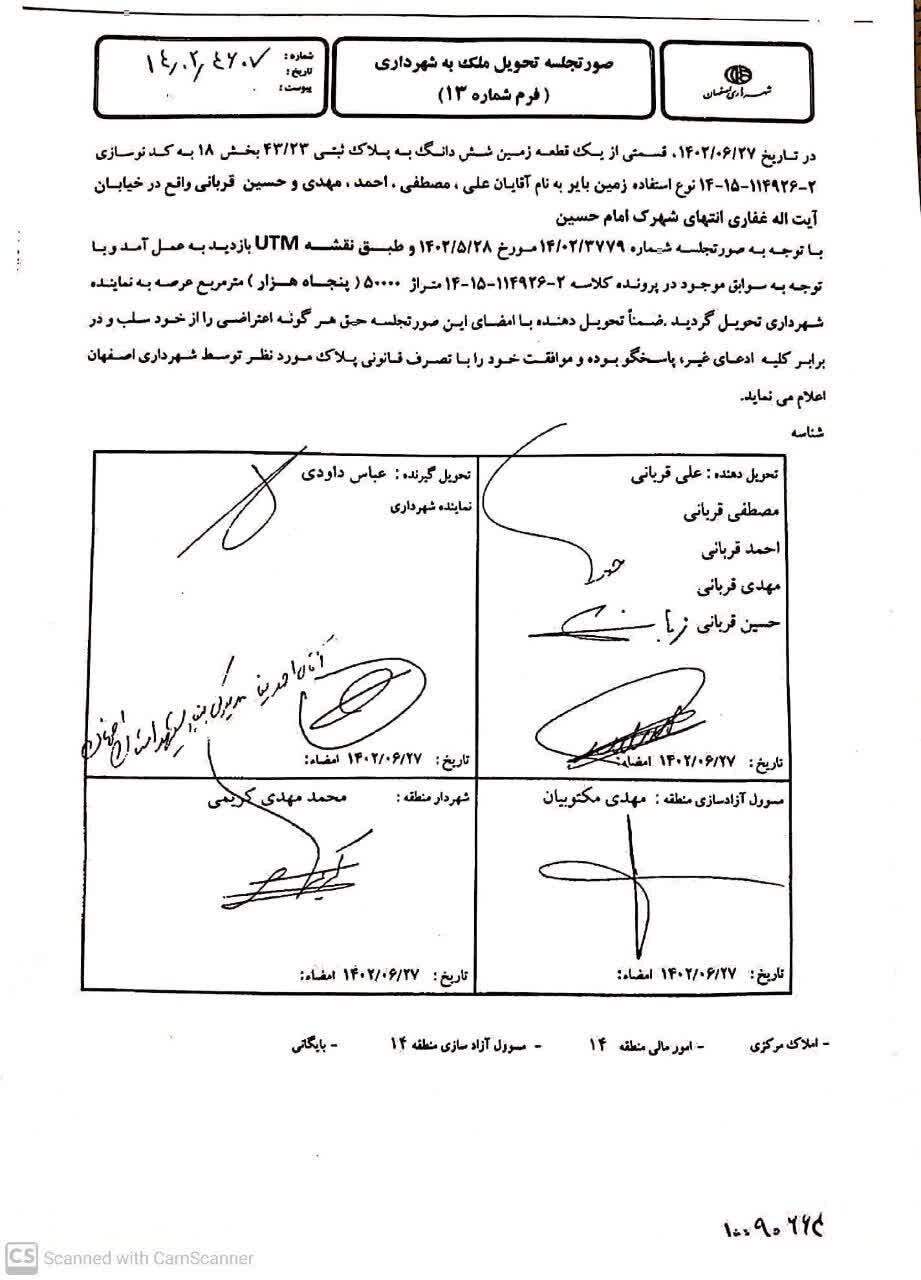 صورتجلسه تحویل ملک به شهرداری
(فرم شماره ۱۳)
شهرداری اصفهان
شماره: ۱۴۰۲/۴۶۰۷
تاریخ:
پیوست:
در تاریخ ۱۴۰۲/۰۶/۲۷، قسمتی از یک قطعه زمین شش دانگ به پلاک ثبتی ۴۳/۲۳ بخش ۱۸ به کد نوسازی
۱۴-۱۵-۱۱۴۹۲۶-۲ نوع استفاده زمین بایر به نام آقایان علی ، مصطفی ، احمد ، مهدی و حسین قربانی واقع در خیابان
آیت اله غفاری انتهای شهرک امام حسین
با توجه به صورتجلسه شماره ۱۴/۰۲/۳۷۷۹ مورخ ۱۴۰۲/۵/۲۸ و طبق نقشه UTM بازدید به عمل آمد و با
توجه به سوابق موجود در پرونده کلاسه ۱۴-۱۵-۱۱۴۹۲۶-۲ متراژ ۵۰۰۰۰ ( پنجاه هزار ) مترمربع عرصه به نماینده
شهرداری تحویل گردید .ضمناً تحویل دهنده با امضای این صورتجلسه حق هر گونه اعتراضی را از خود سلب و در
برابر کلیه ادعای غیر، پاسخگو بوده و موافقت خود را با تصرف قانونی پلاک مورد نظر توسط شهرداری اصفهان
اعلام می نماید.
شناسه
تحویل دهنده : علی قربانی
مصطفی قربانی
احمد قربانی
مهدی قربانی
حسین قربانی
تاریخ: ۱۴۰۲/۰۶/۲۷ امضاء:
تحویل گیرنده : عباس داودی
نماینده شهرداری
تاریخ: ۱۴۰۲/۰۶/۲۷ امضاء:
مسوول آزادسازی منطقه : مهدی مکتوبیان
تاریخ: ۱۴۰۲/۰۶/۲۷ امضاء:
شهردار منطقه : محمد مهدی کریمی
تاریخ: ۱۴۰۲/۰۶/۲۷ امضاء:
- املاک مرکزی - امور مالی منطقه ۱۴ - مسوول آزاد سازی منطقه ۱۴ - بایگانی
CS Scanned with CamScanner